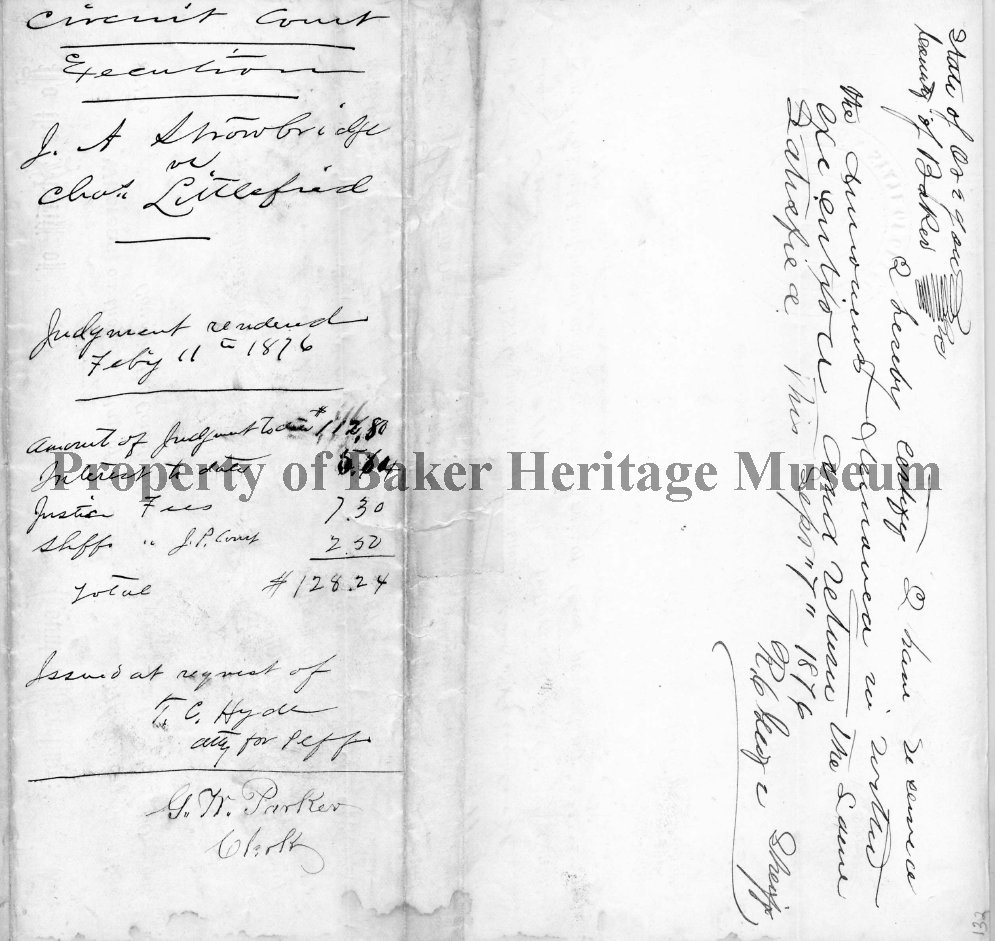 Circuit Court
Execution
J. A Strowbridge
vs
Chas. Littlefield
Judgment rendered
Feby 11th 1876
Amount of Judgment to date $112.80
Interest to date 5.64
Justice Fees 7.30
Shffs " J.P. Court 2.50
Total $128.24
Issued at request of
T. C. Hyde
atty for Plff
G. W. Parker
Clerk
State of Oregon
County of Baker
I hereby certify I have received
the amount in within
Execution and return the same
Satisfied This Sept "7" 1876
Sheriff
132
Property of Baker Heritage Museum